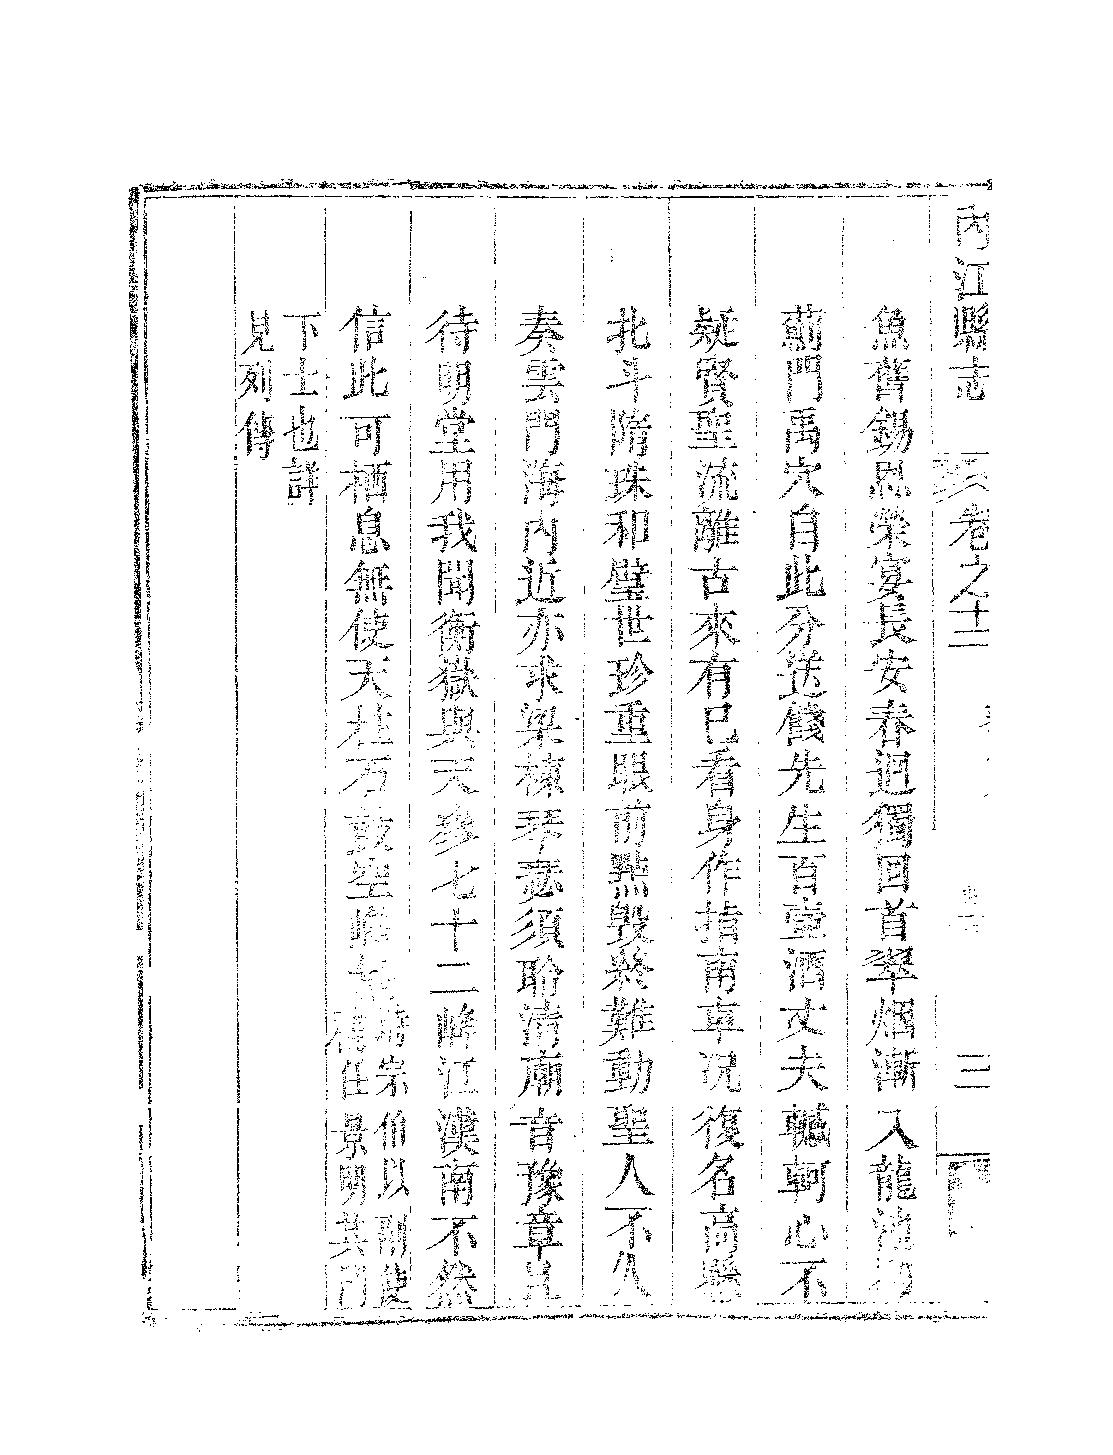 內江縣志
卷之十二
三
魚舊錫恩榮宴長安春迴獨回首翠烟漸入龍池
薊門禹穴自此分送餞先生百壼酒丈夫轗軻心不
疑賢聖流離古來有已看身作指南車况復名高懸
北斗隋珠和璧世珍重眼前點毀終難動聖人不久
奏雲門海內近亦求梁棟琴瑟須聆清廟音豫章且
待明堂用我聞衡嶽與天參七十二峰江漢南不然
信此可栖息無使天柱万
宗伯以副使
任景明其門
下士也詳
見列傳